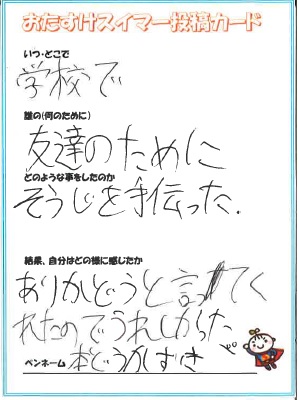 おたすけスイマー投稿カード
いつ・どこで
学校で
誰の(何のために)
友達のために
どのような事をしたのか
そうじを手伝った.
結果、自分はどの様に感じたか
ありがどうと言ってく
れたのでうれしかった
ペンネーム 本どうかしすき